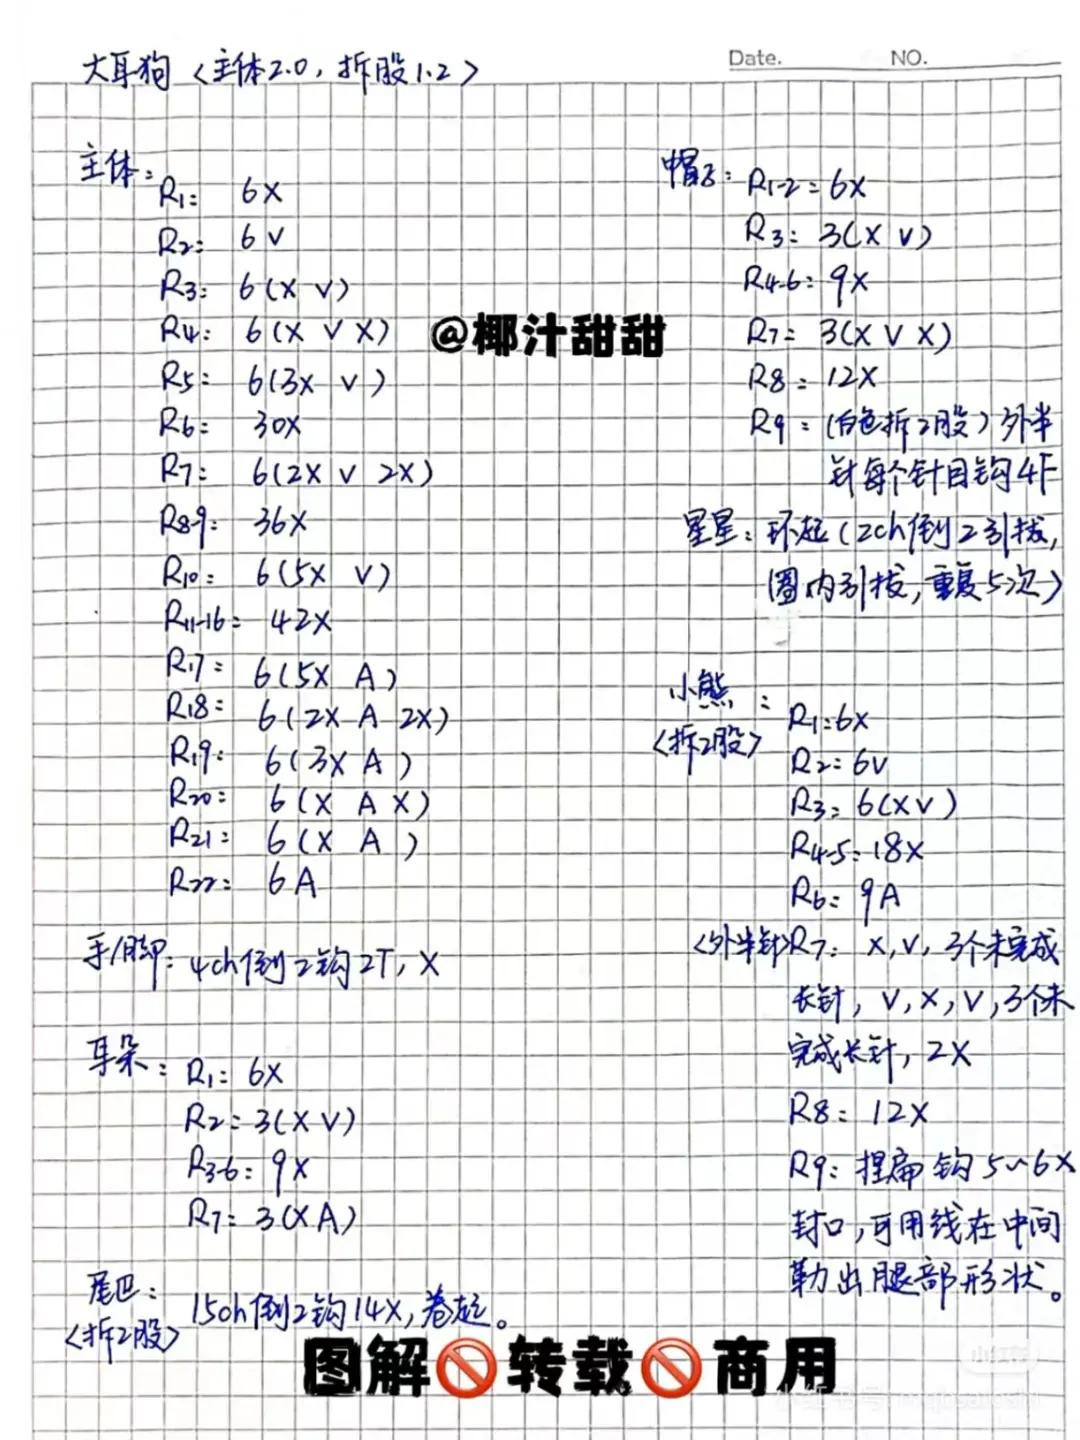 Date. NO.
大耳狗〈主体2.0，拆股1.2〉
主体：
R1： 6X
R2： 6V
R3： 6(X V)
R4： 6(X V X)
R5： 6(3X V)
R6： 30X
R7： 6(2X V 2X)
R8-9： 36X
R10： 6(5X V)
R11-16： 42X
R17： 6(5X A)
R18： 6(2X A 2X)
R19： 6(3X A)
R20： 6(X A X)
R21： 6(X A )
R22： 6A
手/脚：4ch倒2钩2T，X
耳朵：
R1： 6X
R2： 3(X V)
R3-6： 9X
R7： 3(X A)
尾巴：
〈拆2股〉
15ch倒2钩14X，卷起。
帽子：
R1-2= 6X
R3： 3(X V)
R4-6： 9X
R7： 3(X V X)
R8： 12X
R9：(白色拆2股)外半
针每个针目钩4F
星星：环起(2ch倒2引拔，
圈内引拔，重复5次)
小熊：
〈拆2股〉
R1：6X
R2：6V
R3：6(XV)
R4-5：18X
R6：9A
〈外半针〉R7：X，V，3个未完成
长针，V，X，V，3个未
完成长针，2X
R8： 12X
R9：捏扁钩5~6X
封口，可用线在中间
勒出腿部形状。
@椰汁甜甜
图解🚫转载🚫商用
小红书